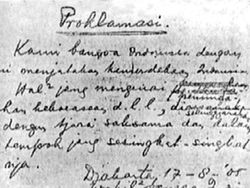 Proklamasi.
Kami bangsa Indonesia dengan
ni menjatakan kemerdekaan Indonesia
Hal² jang mengenai
kekoeasaan d.l.l.,
dengan tjara saksama dan dalam
tempoh jang sesingkat-singkat
nja.
Djakarta 17 - 8 - '05